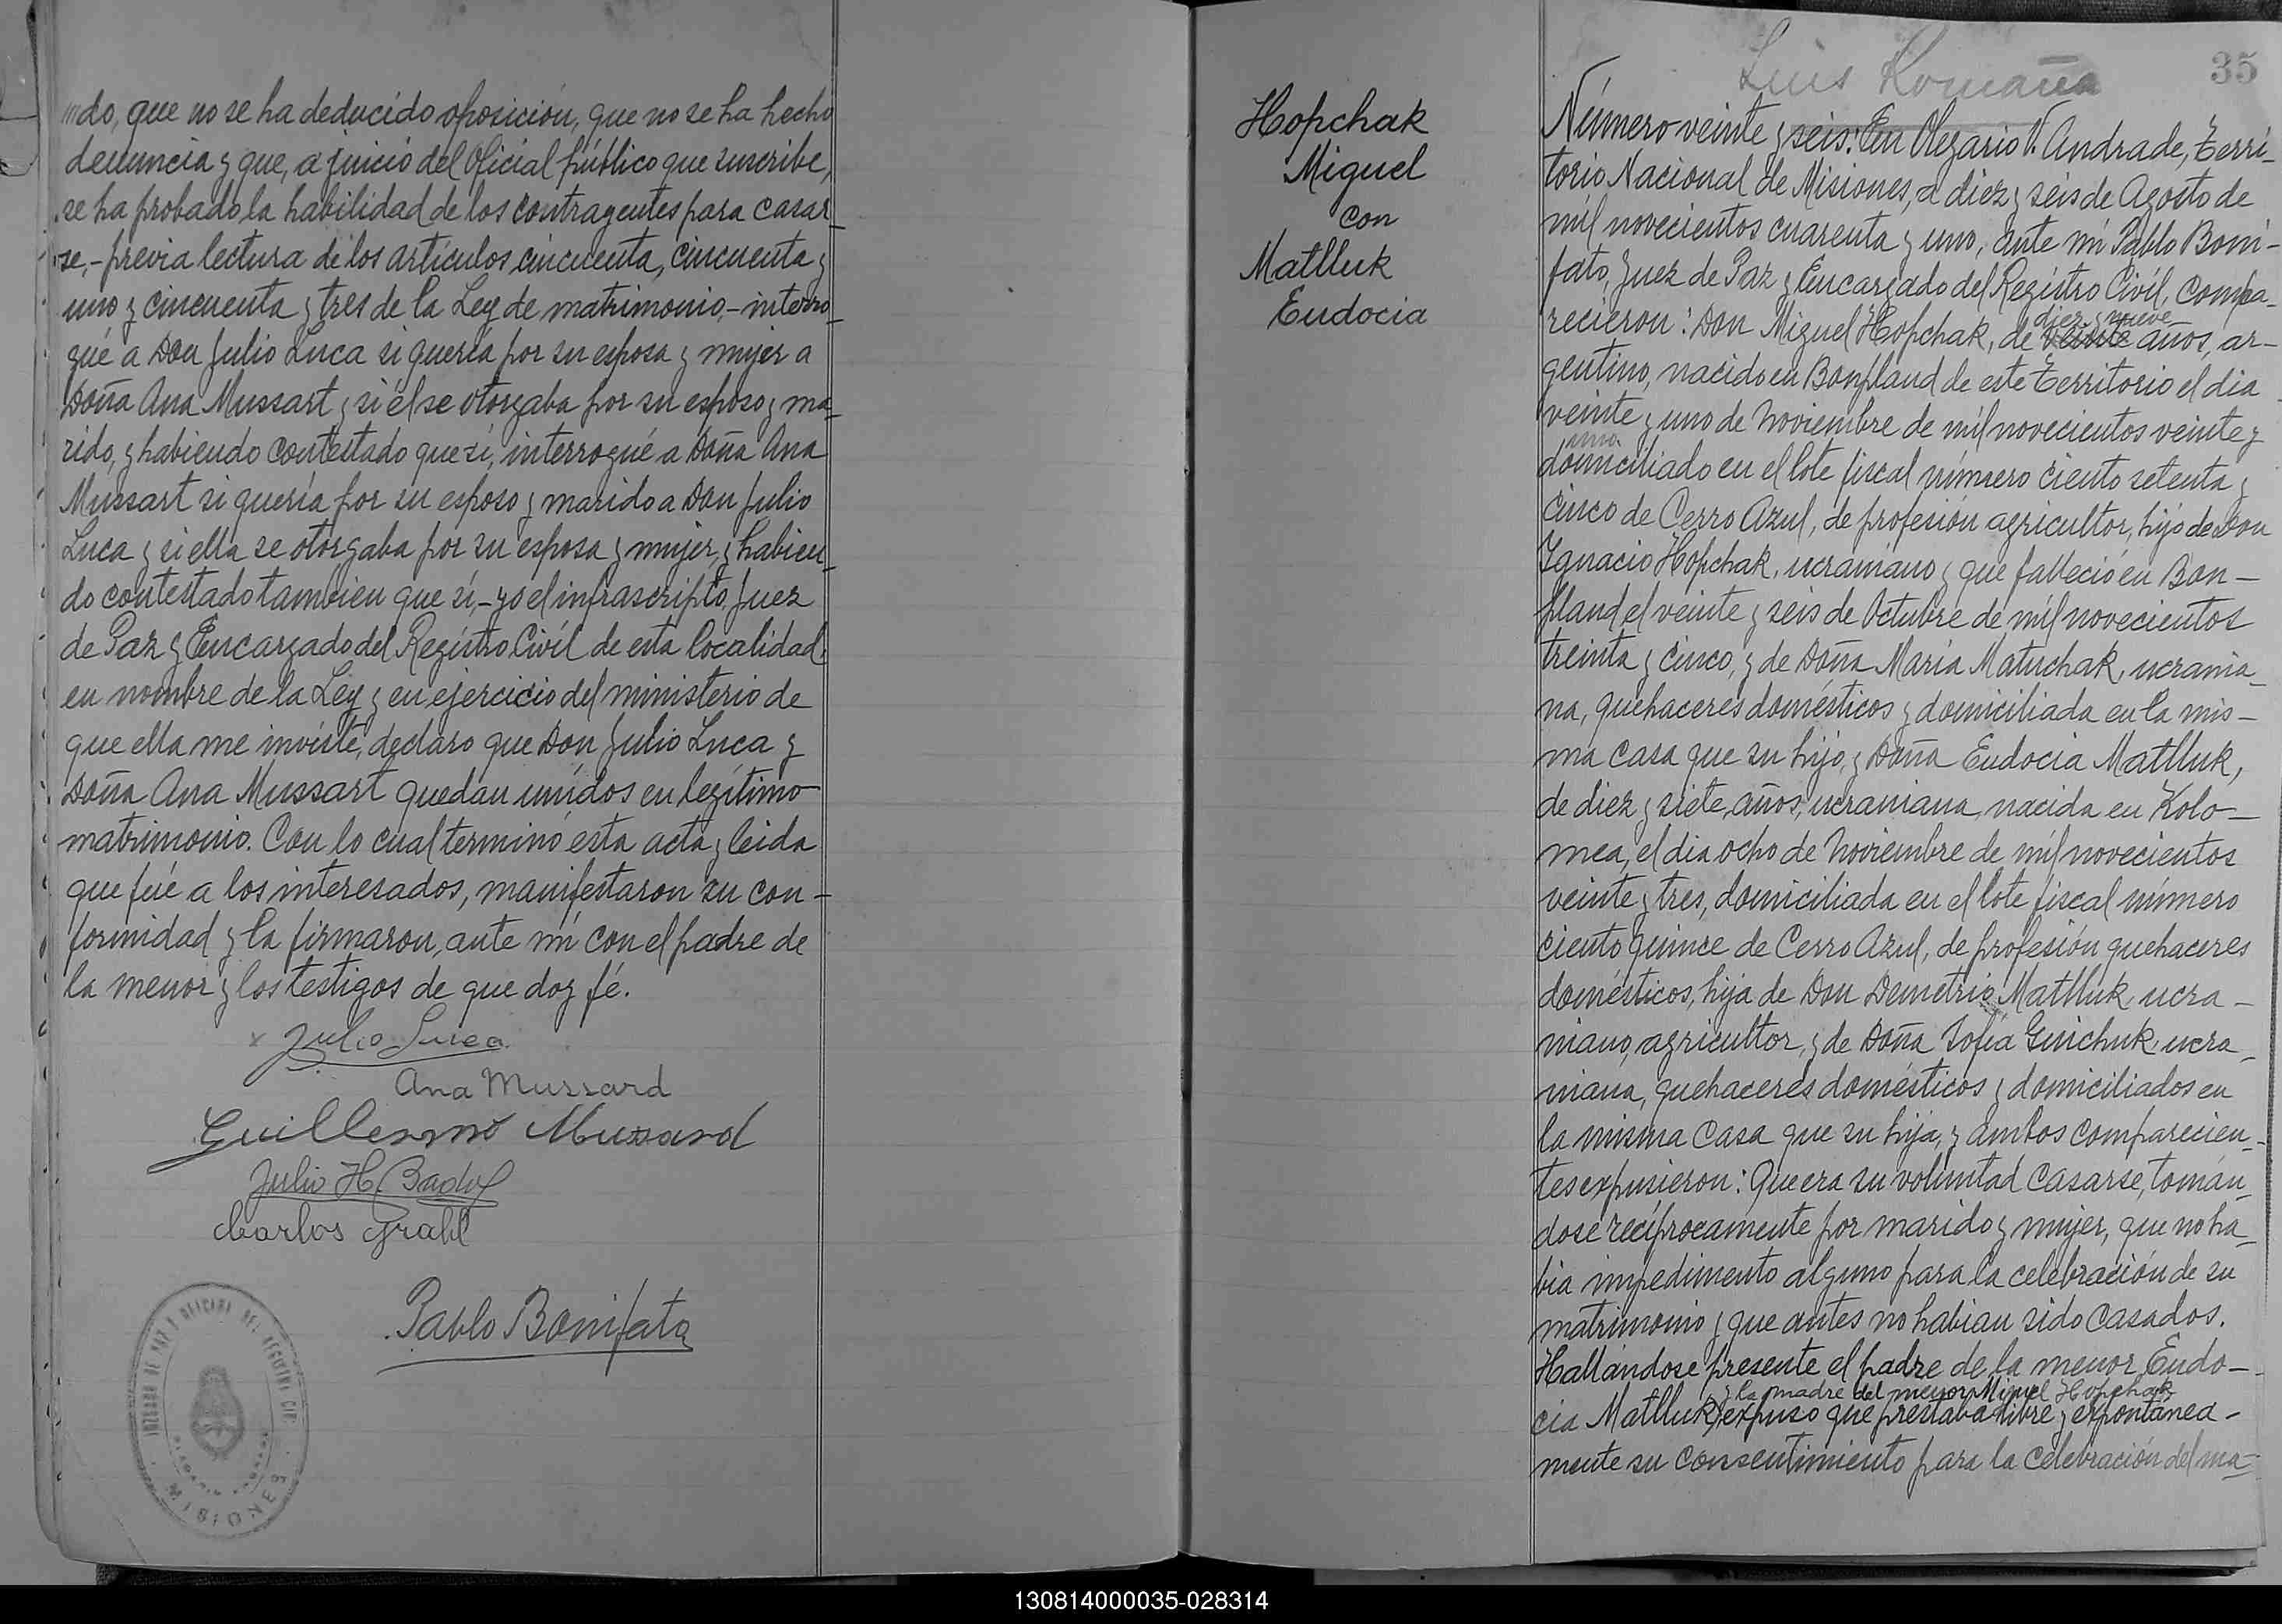 do, que no se ha deducido oposición, que no se ha hecho
denuncia y que, a juicio del Oficial público que suscribe,
se ha probado la habilidad de los contrayentes para casar-
se,- previa lectura de los artículos cincuenta, cincuenta y
uno y cincuenta y tres de la Ley de matrimonio,- interro-
gué a Don Julio Luca si quería por su esposa y mujer a
Doña Ana Mussart y si él se otorgaba por su esposo y ma-
rido, y habiendo contestado que sí, interrogué a Doña Ana
Mussart si quería por su esposo y marido a Don Julio
Luca y si ella se otorgaba por su esposa y mujer, y habien-
do contestado tambien que sí,- yo el infrascripto Juez
de Paz y Encargado del Registro Civil de esta localidad,
en nombre de la Ley y en ejercicio del ministerio de
que ella me inviste, declaro que Don Julio Luca y
Doña Ana Mussart quedan unidos en legítimo
matrimonio. Con lo cual terminó esta acta y leida
que fué a los interesados, manifestaron su con-
formidad y la firmaron, ante mí con el padre de
la menor y los testigos de que doy fé.
x Julio Luca
Ana Mussard
Guillermo Mussard
Julio H.
Carlos Grahl
Pablo Bonifato
MISIONES
Hopchak
Miguel
con
Matlluk
Eudocia
Luis Romaña
35
Número veinte y seis: En Olegario V. Andrade, Terri-
torio Nacional de Misiones, a diez y seis de Agosto de
mil novecientos cuarenta y uno, ante mí Pablo Boni-
fato, Juez de Paz y Encargado del Registro Civil, compa-
diez y nueve
recieron: Don Miguel Hopchak, de veinte años, ar-
gentino, nacido en Bonpland de este Territorio el dia
veinte y uno de Noviembre de mil novecientos veinte y
uno
domiciliado en el lote fiscal número ciento setenta y
cinco de Cerro Azul, de profesión agricultor, hijo de Don
Ignacio Hopchak, ucraniano y que falleció en Bon-
pland el veinte y seis de Octubre de mil novecientos
treinta y cinco, y de Doña María Matuchak, ucrania-
na, quehaceres domésticos y domiciliada en la mis-
ma casa que su hijo, y Doña Eudocia Matlluk,
de diez y siete años, ucraniana, nacida en Kolo-
mea, el dia ocho de Noviembre de mil novecientos
veinte y tres, domiciliada en el lote fiscal número
ciento quince de Cerro Azul, de profesión quehaceres
domésticos, hija de Don Demetrio Matlluk, ucra-
niano, agricultor, y de Doña Sofía Guichuk, ucra-
niana, quehaceres domésticos y domiciliados en
la misma casa que su hija, y ambos comparecien-
tes expusieron: Que era su voluntad casarse, tomán-
dose recíprocamente por marido y mujer, que no ha-
bia impedimento alguno para la celebración de su
matrimonio y que antes no habian sido casados.
Hallándose presente el padre de la menor Eudo-
y la madre del menor Miguel Hopchak
cia Matlluk, expuso que prestaba libre y expontánea-
mente su consentimiento para la celebración del ma-
130814000035-028314